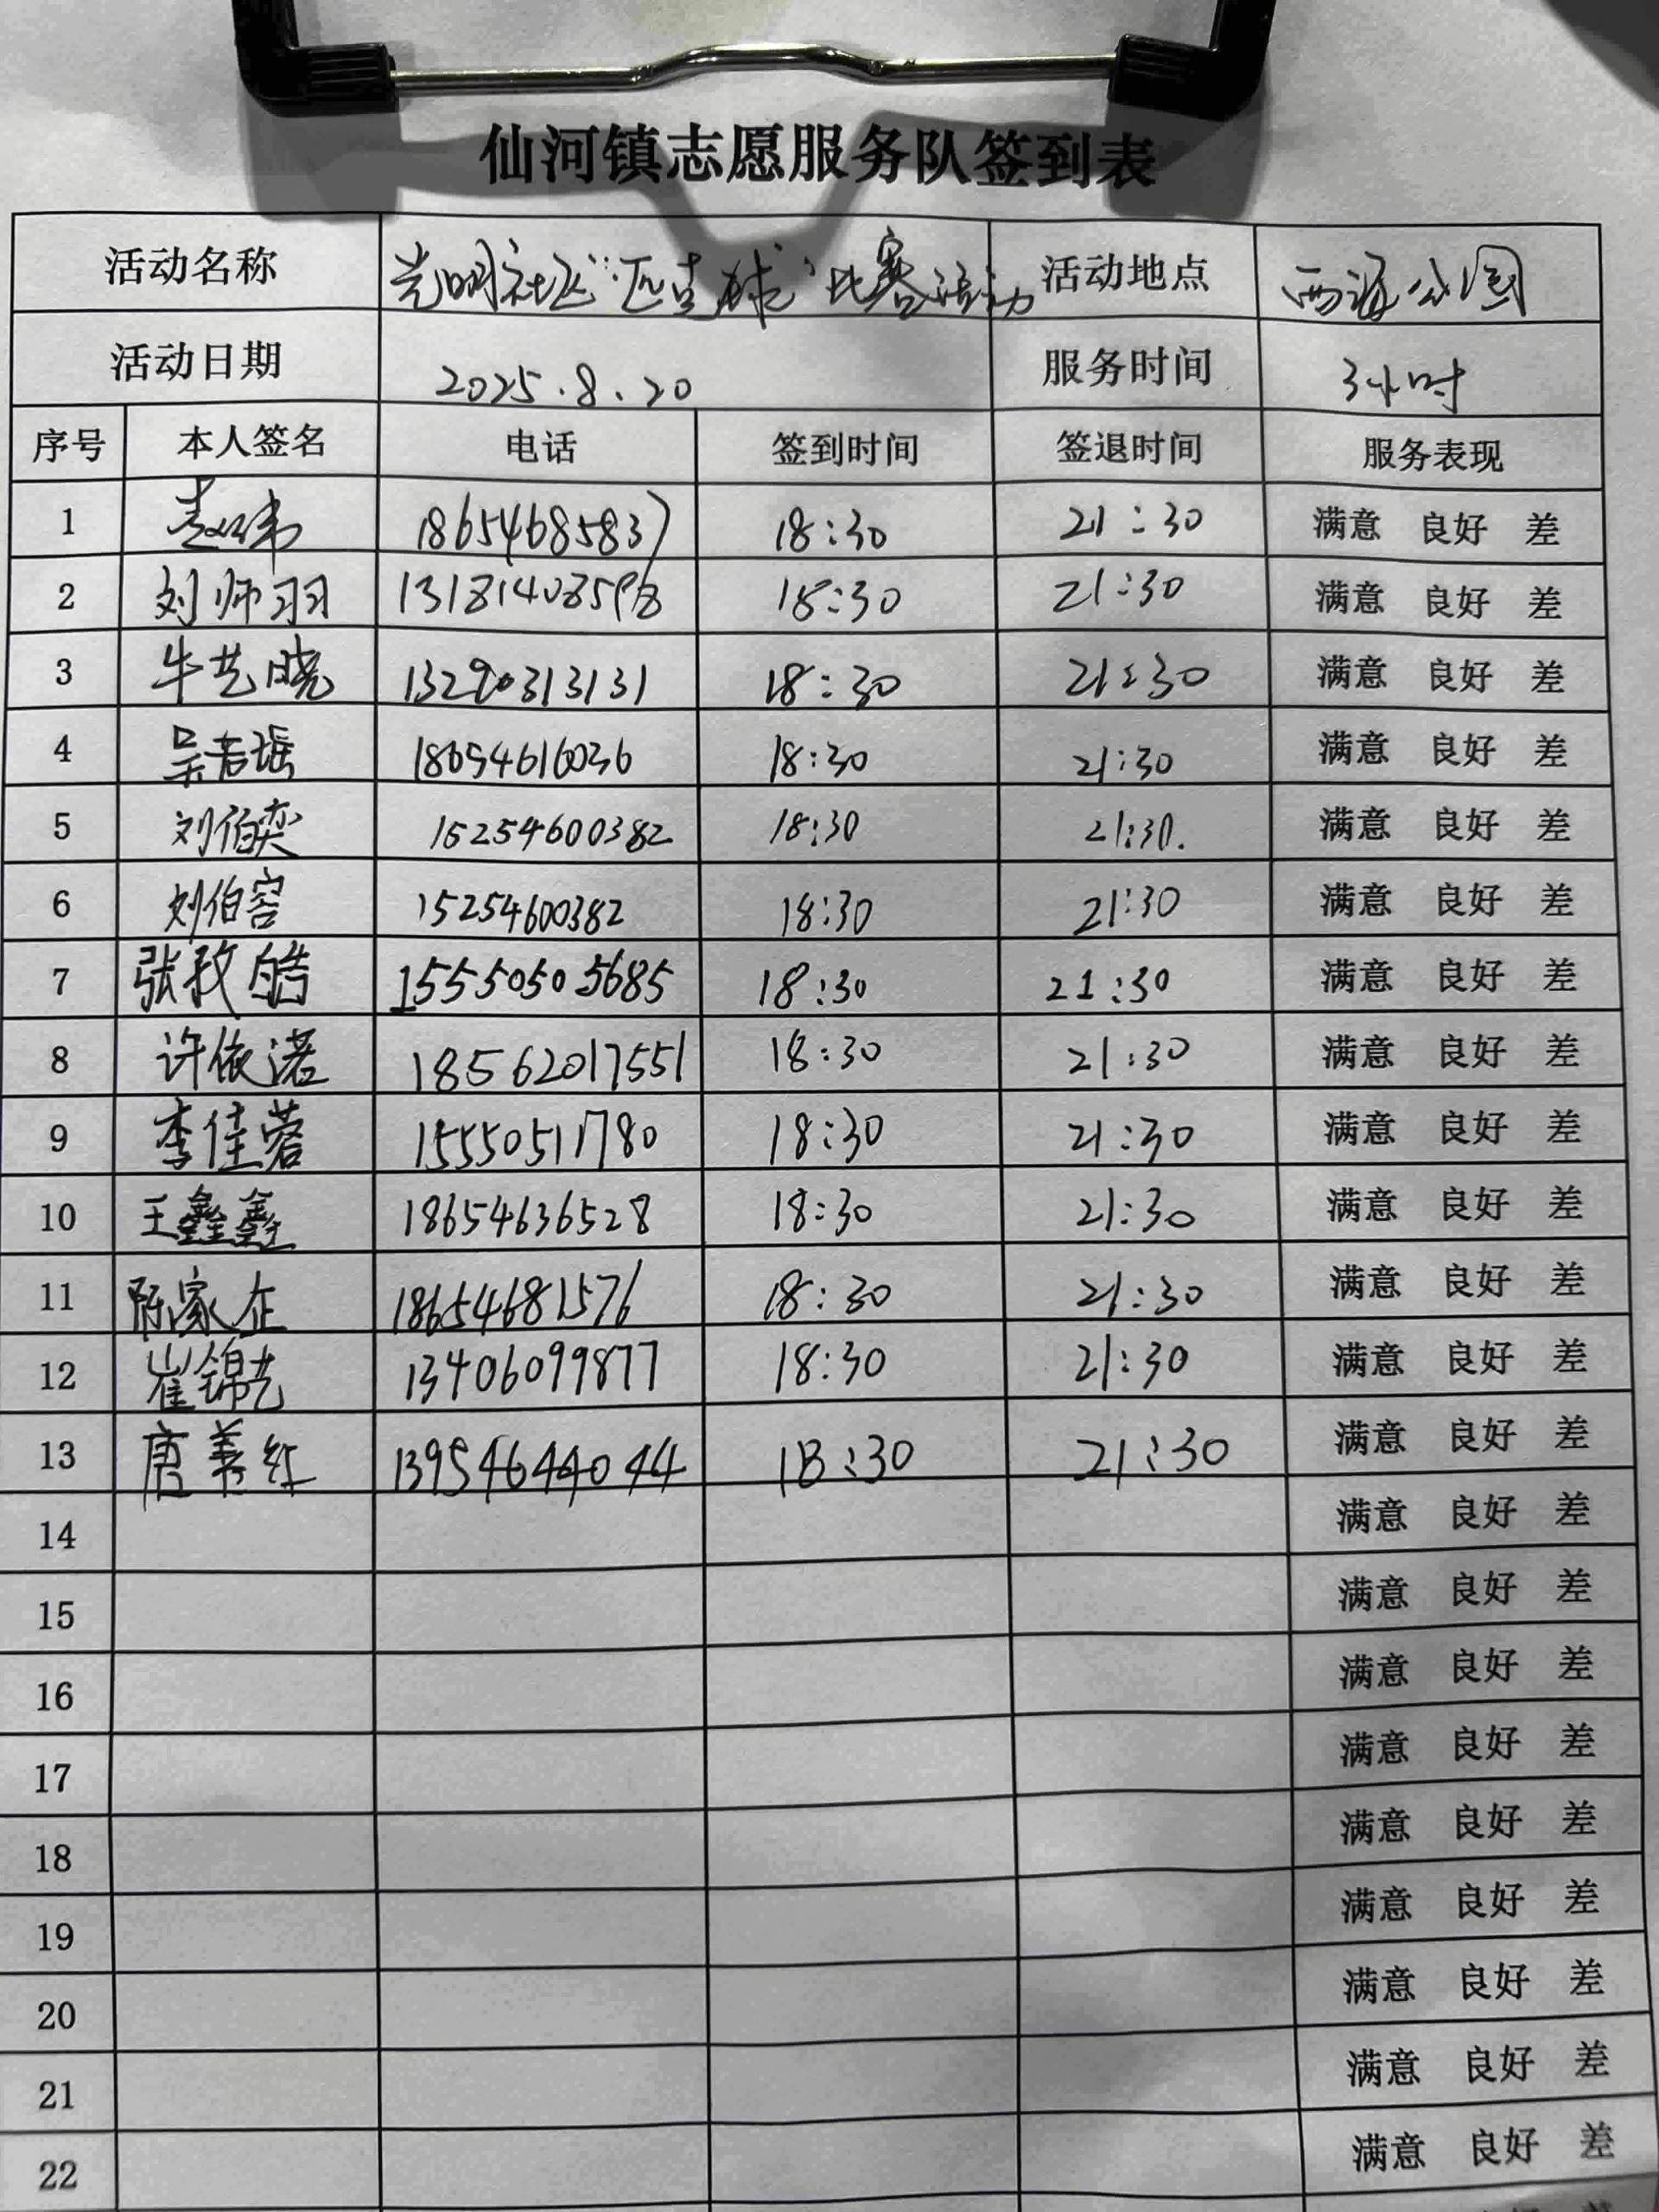 仙河镇志愿服务队签到表
活动名称 光明社区“匹克球”比赛活动 活动地点 西湖公园
活动日期 2025.8.20 服务时间 3小时
序号 本人签名 电话 签到时间 签退时间 服务表现
1 18654685837 18:30 21:30 满意 良好 差
2 刘师羽 18:30 21:30 满意 良好 差
3 牛艺晓 13290313131 18:30 21:30 满意 良好 差
4 吴若瑶 18654616036 18:30 21:30 满意 良好 差
5 刘伯奕 15254600382 18:30 21:30. 满意 良好 差
6 刘伯容 15254600382 18:30 21:30 满意 良好 差
7 张孜皓 15550505685 18:30 21:30 满意 良好 差
8 许依诺 18562017551 18:30 21:30 满意 良好 差
9 李佳蓉 15550511780 18:30 21:30 满意 良好 差
10 王鑫鑫 18654636528 18:30 21:30 满意 良好 差
11 陈家 18654681576 18:30 21:30 满意 良好 差
12 崔锦 13406099877 18:30 21:30 满意 良好 差
13 唐善红 13954644044 18:30 21:30 满意 良好 差
14 满意 良好 差
15 满意 良好 差
16 满意 良好 差
17 满意 良好 差
18 满意 良好 差
19 满意 良好 差
20 满意 良好 差
21 满意 良好 差
22 满意 良好 差